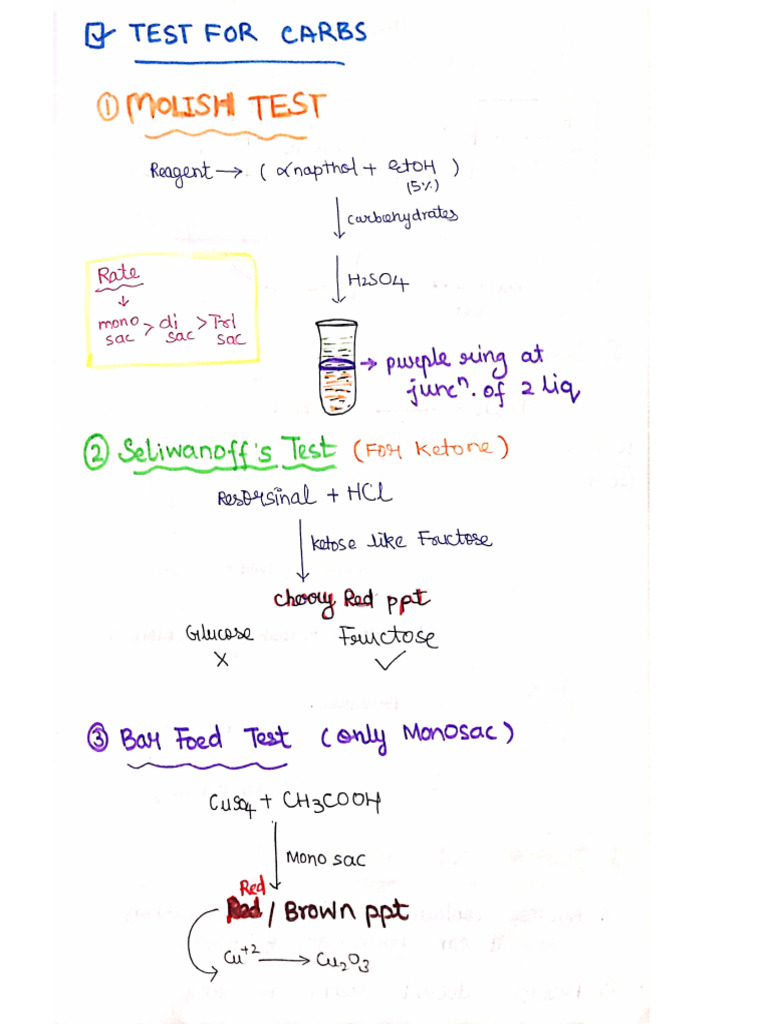 TEST FOR CARBS
① MOLISH TEST
Reagent → ( α napthol + EtOH )
(5%)
carbohydrates
H2SO4
Rate
mono sac > di sac > Tri sac
→ purple ring at
juncⁿ. of 2 liq
② Seliwanoff's Test (FOR Ketone)
Resorsinal + HCl
ketose like Fructose
cherry Red ppt
Glucose Fructose
X ✓
③ Bar Foed Test (only Monosac)
CuSO4 + CH3COOH
Mono sac
Red
Red / Brown ppt
Cu+2 → Cu2O3